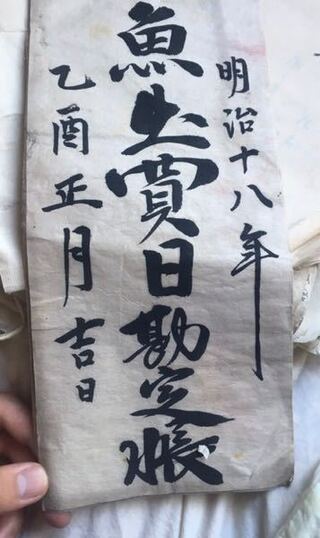 明治十八年
魚出買日勘定帳
乙酉正月吉日